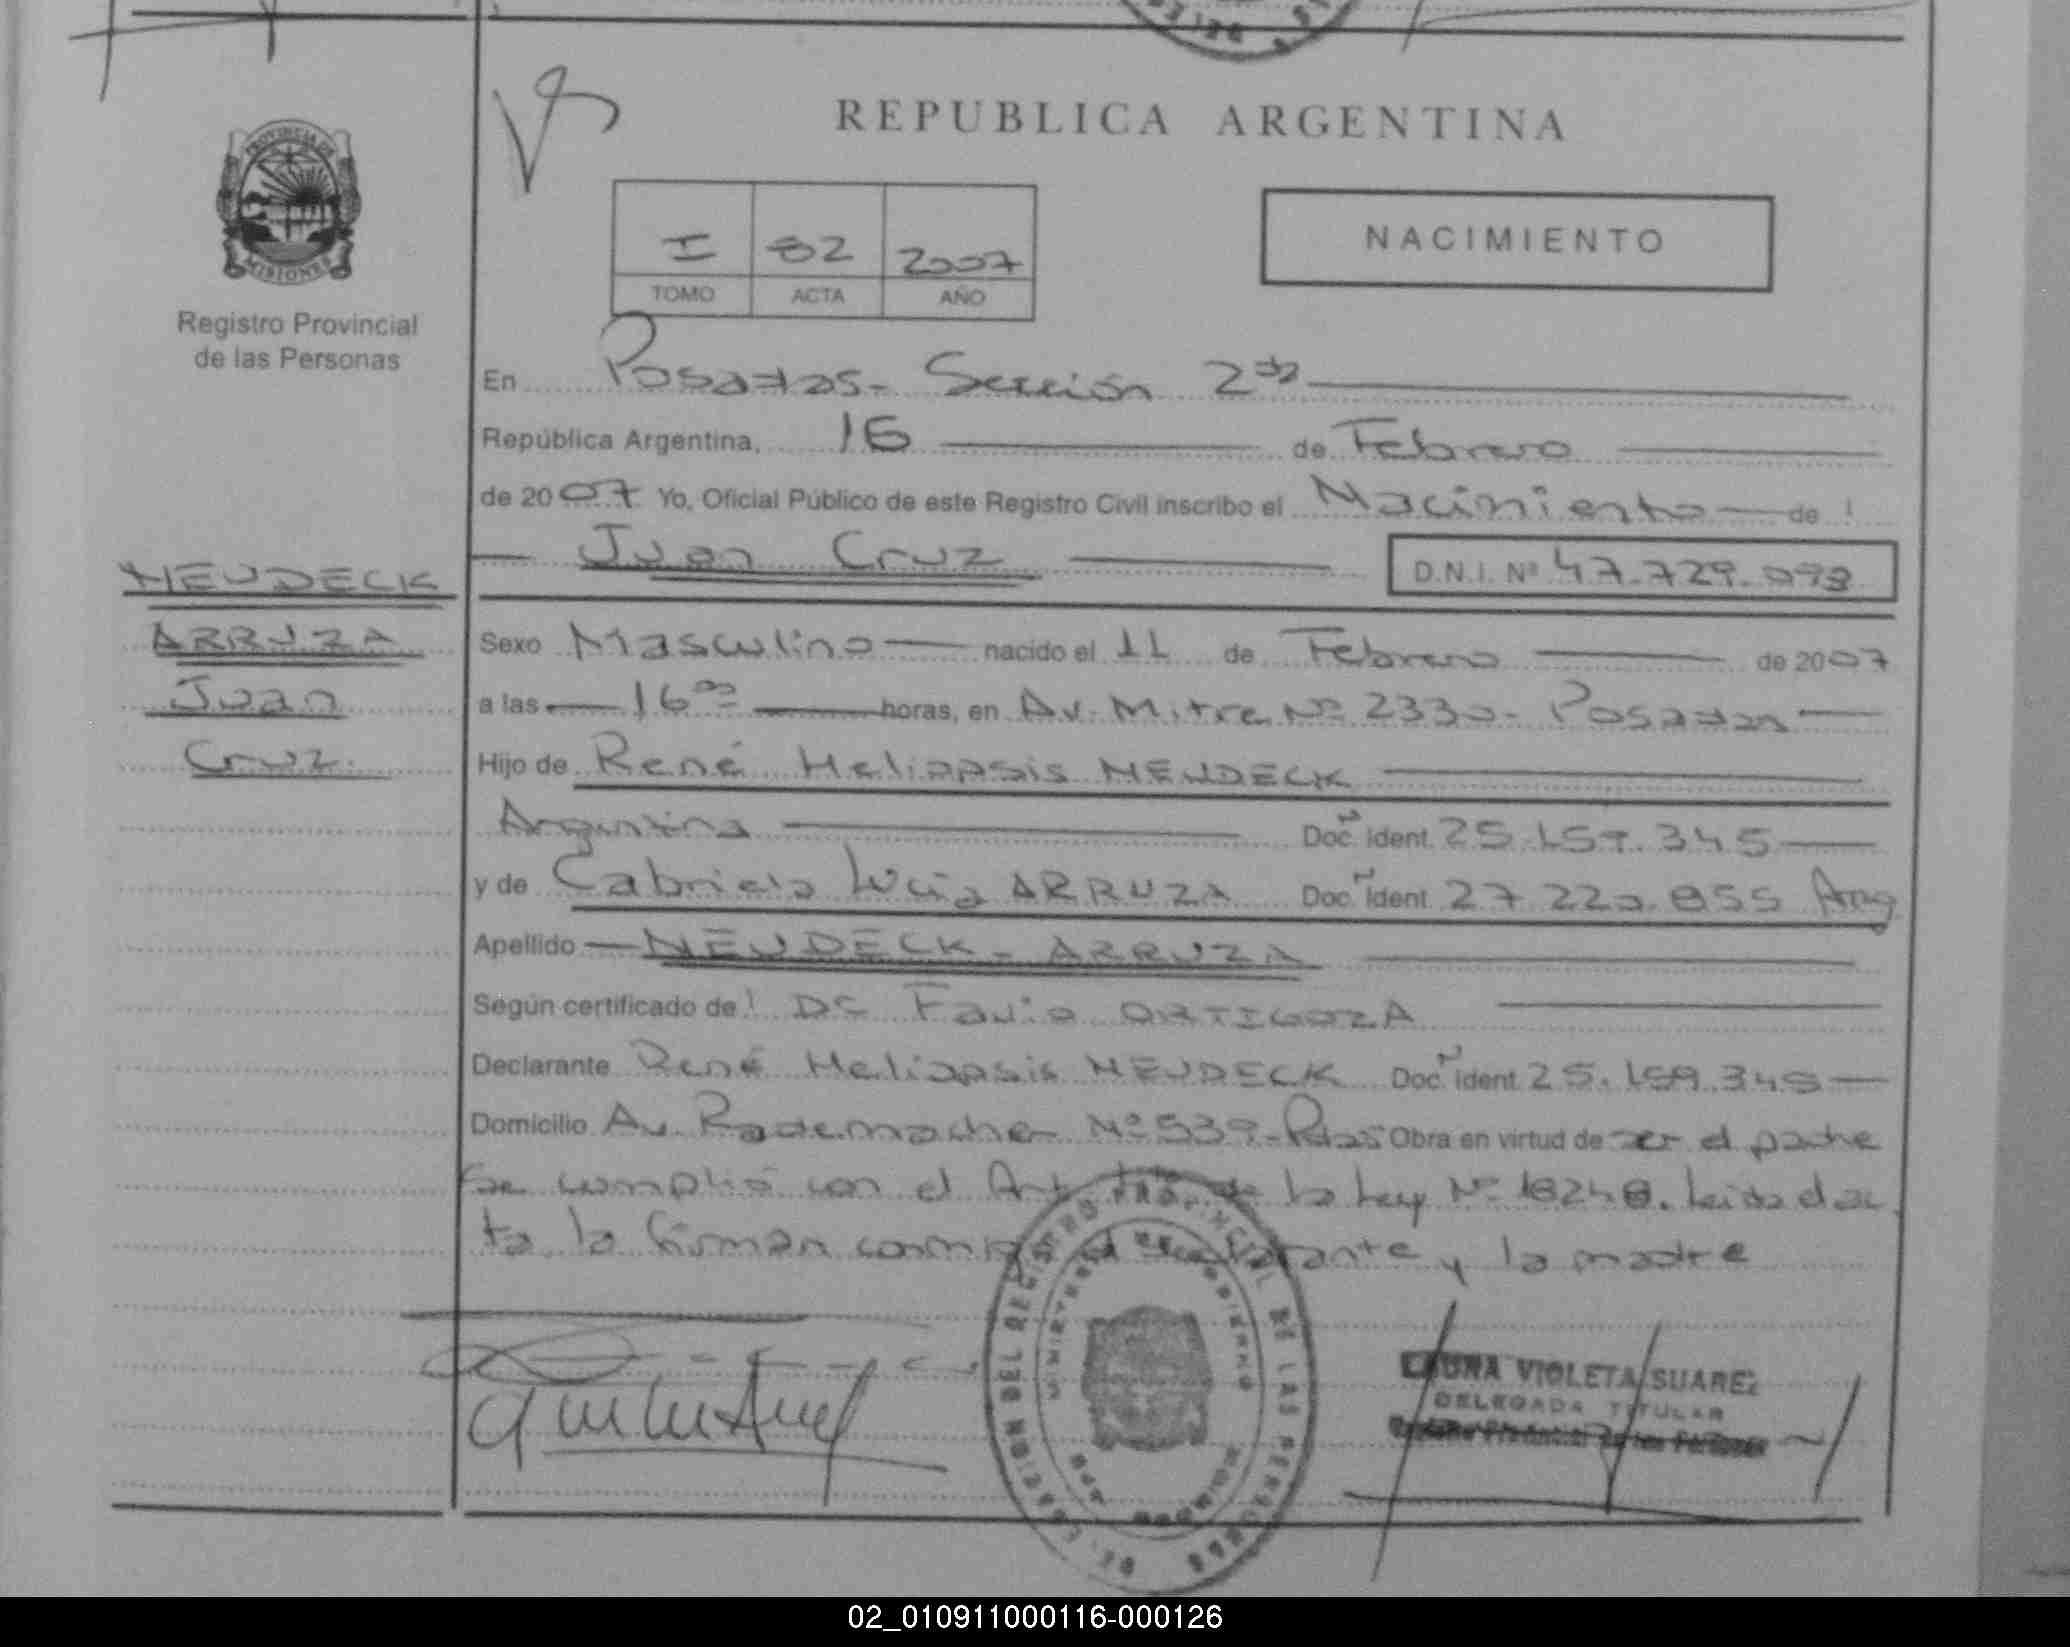 REPUBLICA ARGENTINA
PROVINCIA DE MISIONES
Registro Provincial
de las Personas
I 82 2007
TOMO ACTA AÑO
NACIMIENTO
En Posadas- Sección 2da
República Argentina, 16 de Febrero
de 2007 Yo, Oficial Público de este Registro Civil inscribo el Nacimiento de
Juan Cruz D.N.I. Nº 47.729.093
NEUDECK
ARRUZA
Juan
Cruz
Sexo Masculino nacido el 11 de Febrero de 2007
a las 16 00 horas, en Av. Mitre Nº 2330- Posadas
Hijo de René Heliopsis NEUDECK
Argentina Doc. Ident. 25.159.345
y de Gabriela Lucia ARRUZA Doc. Ident. 27 220.855 Arg
Apellido NEUDECK - ARRUZA
Según certificado de Dr Favio ORTIGOZA
Declarante René Heliopsis NEUDECK Doc. Ident. 25.159.345
Domicilio Av Rademacher Nº 539- Pdas Obra en virtud de ser el padre
Se cumplió con el Art de la Ley Nº 18248. Leida el ac
ta la firman conmigo el declarante y la madre
DIRECCION DEL REGISTRO PROVINCIAL DE LAS PERSONAS
MINISTERIO DE GOBIERNO
VIOLETA SUAREZ
DELEGADA TITULAR
Registro Provincial de las Personas
02_010911000116-000126